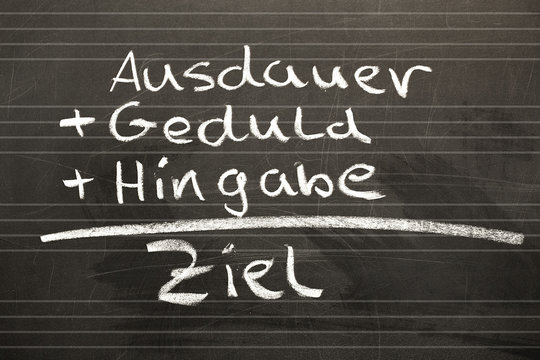 Ausdauer
+ Geduld
+ Hingabe
Ziel